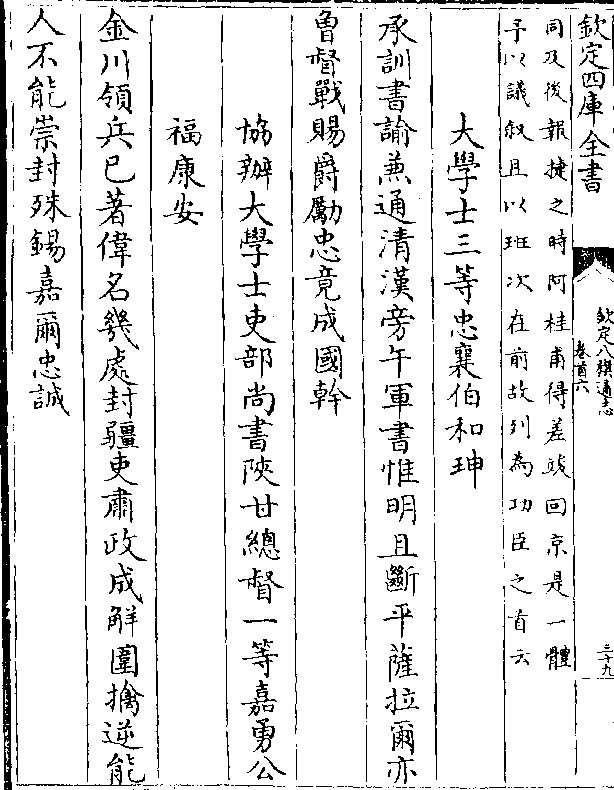 欽定四庫全書
欽定八旗通志
卷首六
三十九
同及後報捷之時阿桂甫得差竣回京是一體
予以議敘且以班次在前故列為功臣之首云
大學士三等忠襄伯和珅
承訓書諭兼通清漢旁午軍書惟明且斷平薩拉爾亦
曾督戰賜爵勵忠竟成國幹
協辦大學士吏部尚書陝甘總督一等嘉勇公
福康安
金川領兵已著偉名幾處封疆吏肅政成解圍擒逆能
人不能崇封殊錫嘉爾忠誠